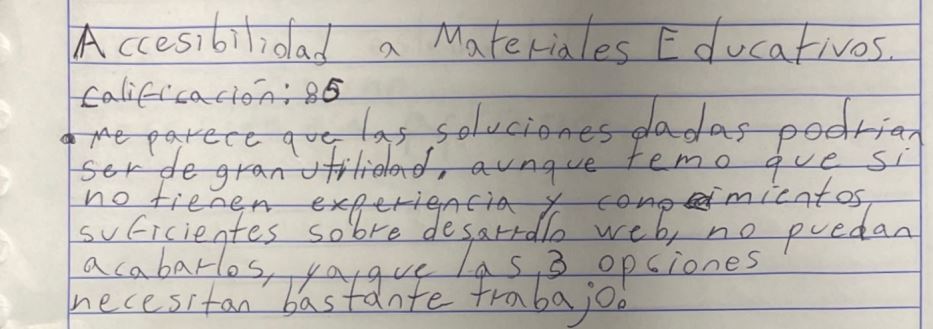 Accesibilidad a Materiales Educativos.
Calificación: 85
• Me parece que las soluciones dadas podrian
ser de gran utilidad, aunque temo que si
no tienen experiencia y conocimientos
suficientes sobre desarrollo web, no puedan
acabarlos, ya que las 3 opciones
necesitan bastante trabajo.